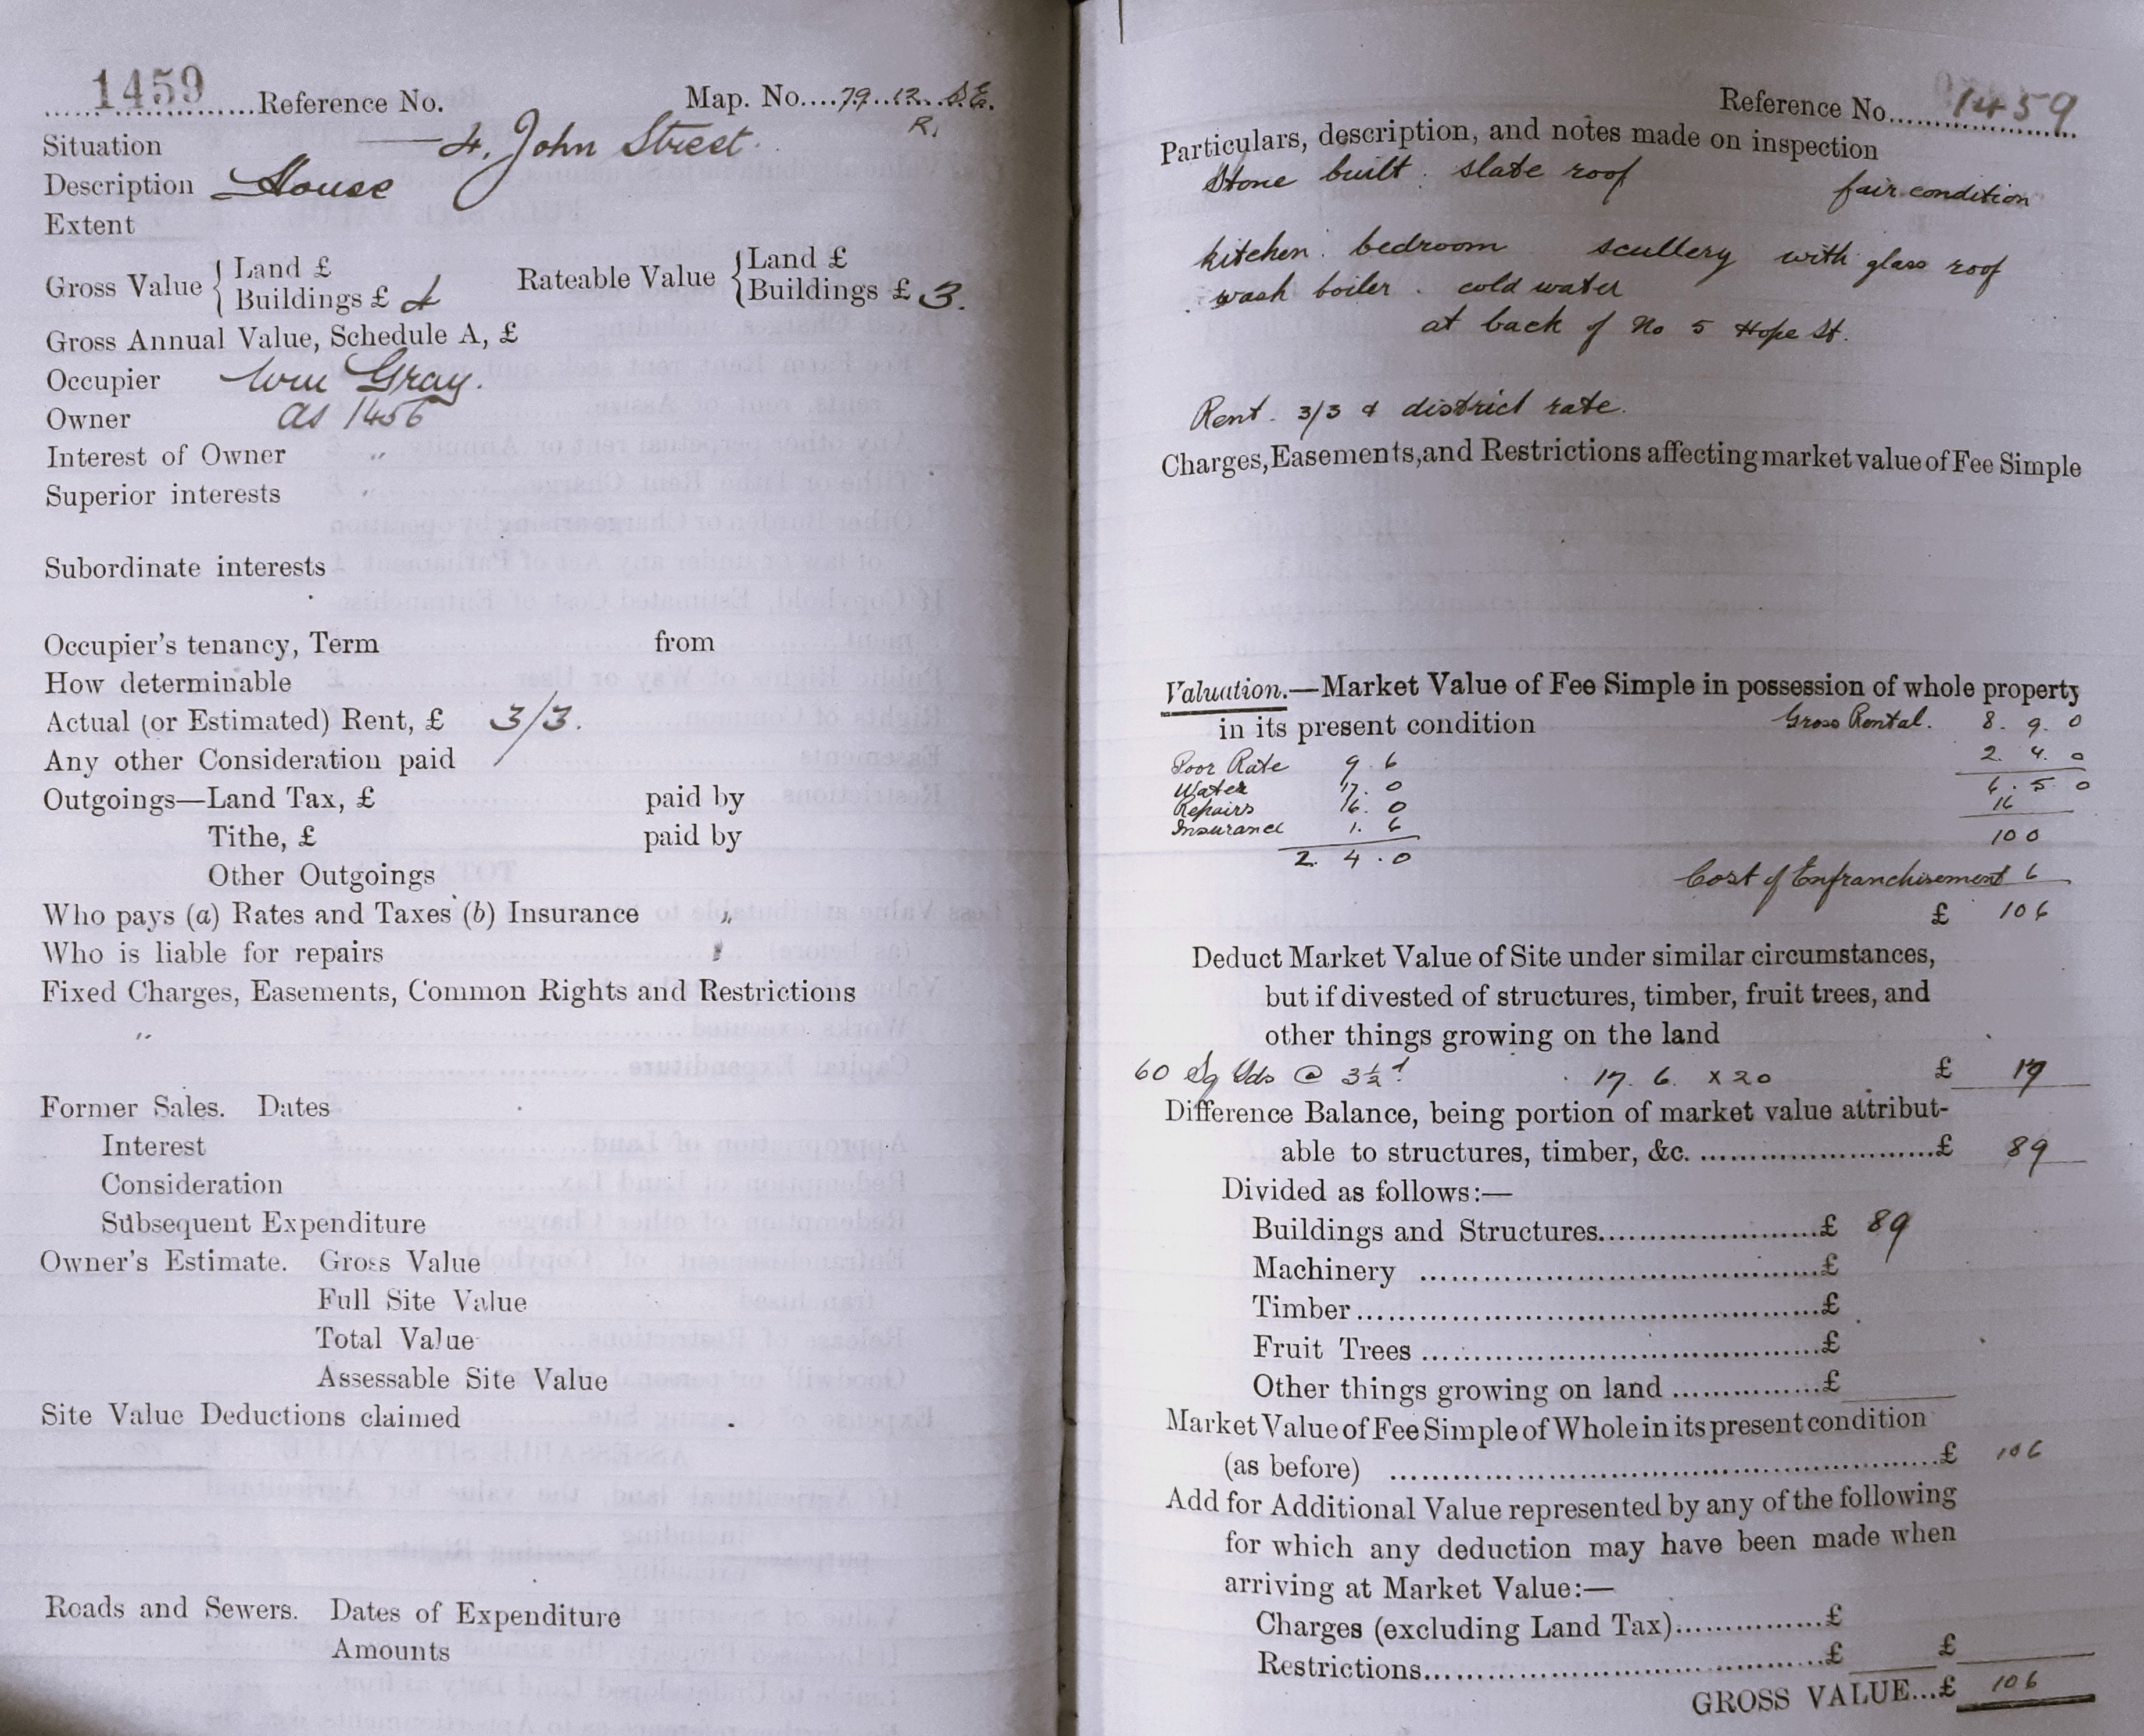 1459 Reference No. Map. No....79..12..S.E.
R.
Situation — 4, John Street.
Description House
Extent
Gross Value { Land £
Buildings £ 4
Rateable Value { Land £
Buildings £ 3.
Gross Annual Value, Schedule A, £
Occupier Wm Gray.
Owner as 1456
Interest of Owner "
Superior interests "
Subordinate interests
Occupier's tenancy, Term from
How determinable
Actual (or Estimated) Rent, £ 3/3.
Any other Consideration paid
Outgoings—Land Tax, £ paid by
Tithe, £ paid by
Other Outgoings
Who pays (a) Rates and Taxes (b) Insurance "
Who is liable for repairs "
Fixed Charges, Easements, Common Rights and Restrictions
"
Former Sales. Dates
Interest
Consideration
Subsequent Expenditure
Owner's Estimate. Gross Value
Full Site Value
Total Value
Assessable Site Value
Site Value Deductions claimed
Roads and Sewers. Dates of Expenditure
Amounts
Reference No. 1459
Particulars, description, and notes made on inspection
Stone built. slate roof fair condition
kitchen. bedroom scullery with glass roof
wash boiler. cold water
at back of No 5 Hope St.
Rent. 3/3 & district rate.
Charges, Easements, and Restrictions affecting market value of Fee Simple
Valuation.—Market Value of Fee Simple in possession of whole property
in its present condition Gross Rental. 8. 9. 0
Poor Rate 9. 6 2. 4. 0
Water 17. 0 6. 5. 0
Repairs 16. 0 16
Insurance 1. 6 100
2. 4. 0
Cost of Enfranchisement 6
£ 106
Deduct Market Value of Site under similar circumstances,
but if divested of structures, timber, fruit trees, and
other things growing on the land
60 Sq Yds @ 3½d. 17. 6. x 20 £ 17
Difference Balance, being portion of market value attribut-
able to structures, timber, &c. £ 89
Divided as follows:—
Buildings and Structures £ 89
Machinery £
Timber £
Fruit Trees £
Other things growing on land £
Market Value of Fee Simple of Whole in its present condition
(as before) £ 106
Add for Additional Value represented by any of the following
for which any deduction may have been made when
arriving at Market Value:—
Charges (excluding Land Tax) £
Restrictions £ £
GROSS VALUE...£ 106